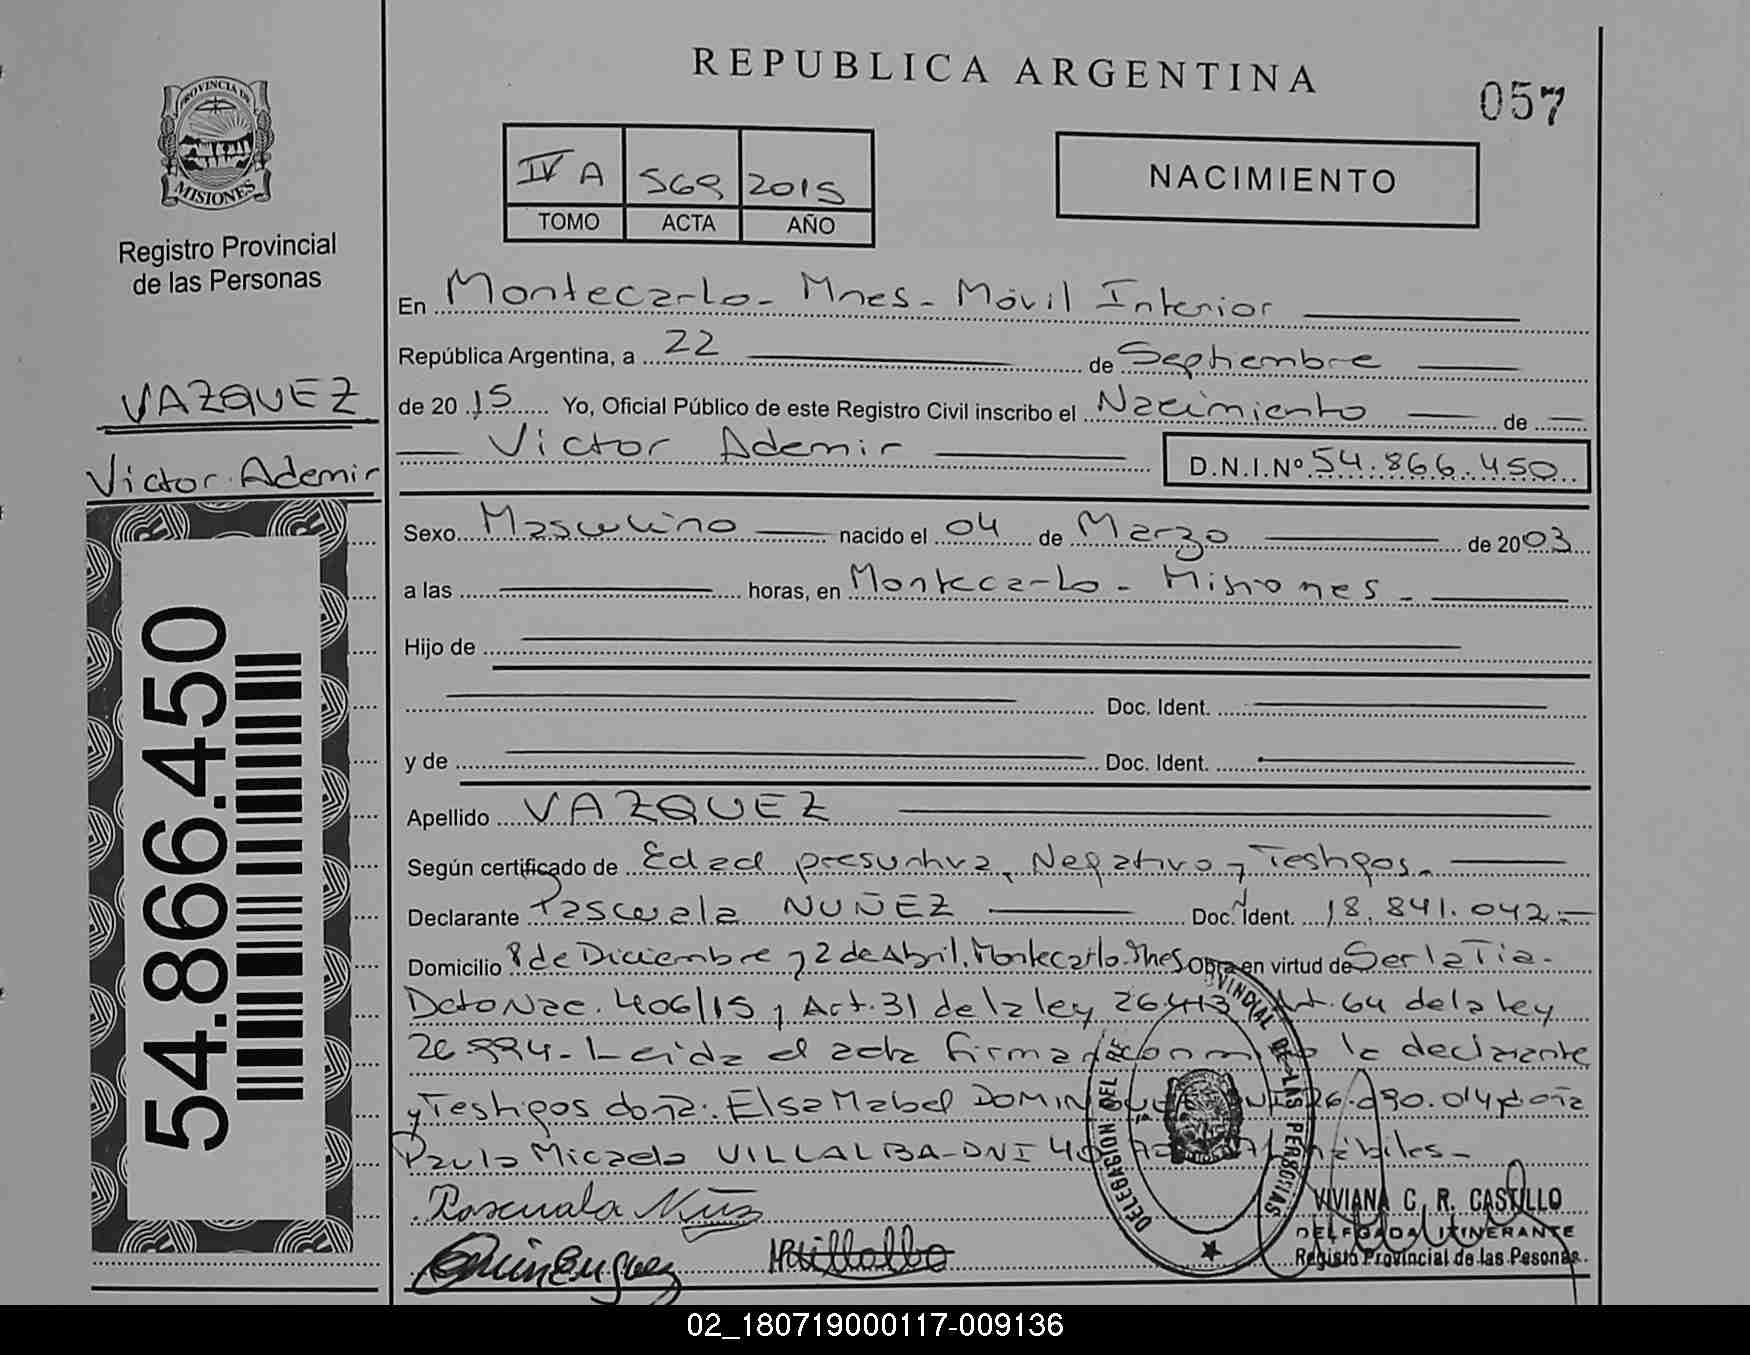 REPUBLICA ARGENTINA
057
PROVINCIA DE
MISIONES
Registro Provincial
de las Personas
IV A 569 2015
TOMO ACTA AÑO
NACIMIENTO
En Montecarlo- Mnes- Móvil Interior
República Argentina, a 22 de Septiembre
de 2015 Yo, Oficial Público de este Registro Civil inscribo el Nacimiento de
Victor Ademir
D.N.I.Nº 54.866.450
VAZQUEZ
Victor Ademir
54.866.450
Sexo Masculino nacido el 04 de Marzo de 2003
a las horas, en Montecarlo - Misiones -
Hijo de
Doc. Ident.
y de Doc. Ident.
Apellido VAZQUEZ
Según certificado de Edad presuntiva, Negativo y Testigos.
Declarante Pascuala NUÑEZ Doc. Ident. 18.841.042.-
Domicilio 8 de Diciembre y 2 de Abril. Montecarlo. Mnes Obra en virtud de Ser la Tia.
Dcto Nac. 406/15 y Art. 31 de la ley 26.413 Art. 64 de la ley
26.994- Leida el acta firman con la declarante
y Testigos doña: Elsa Mabel 26.090.014 y doña
Paula Micaela VILLALBA-DNI hábiles-
Pascuala
DELEGACION DEL PROVINCIAL DE LAS PERSONAS
VIVIANA C. R. CASTILLO
DELEGADA ITINERANTE
Registo Provincial de las Pesonas
02_180719000117-009136